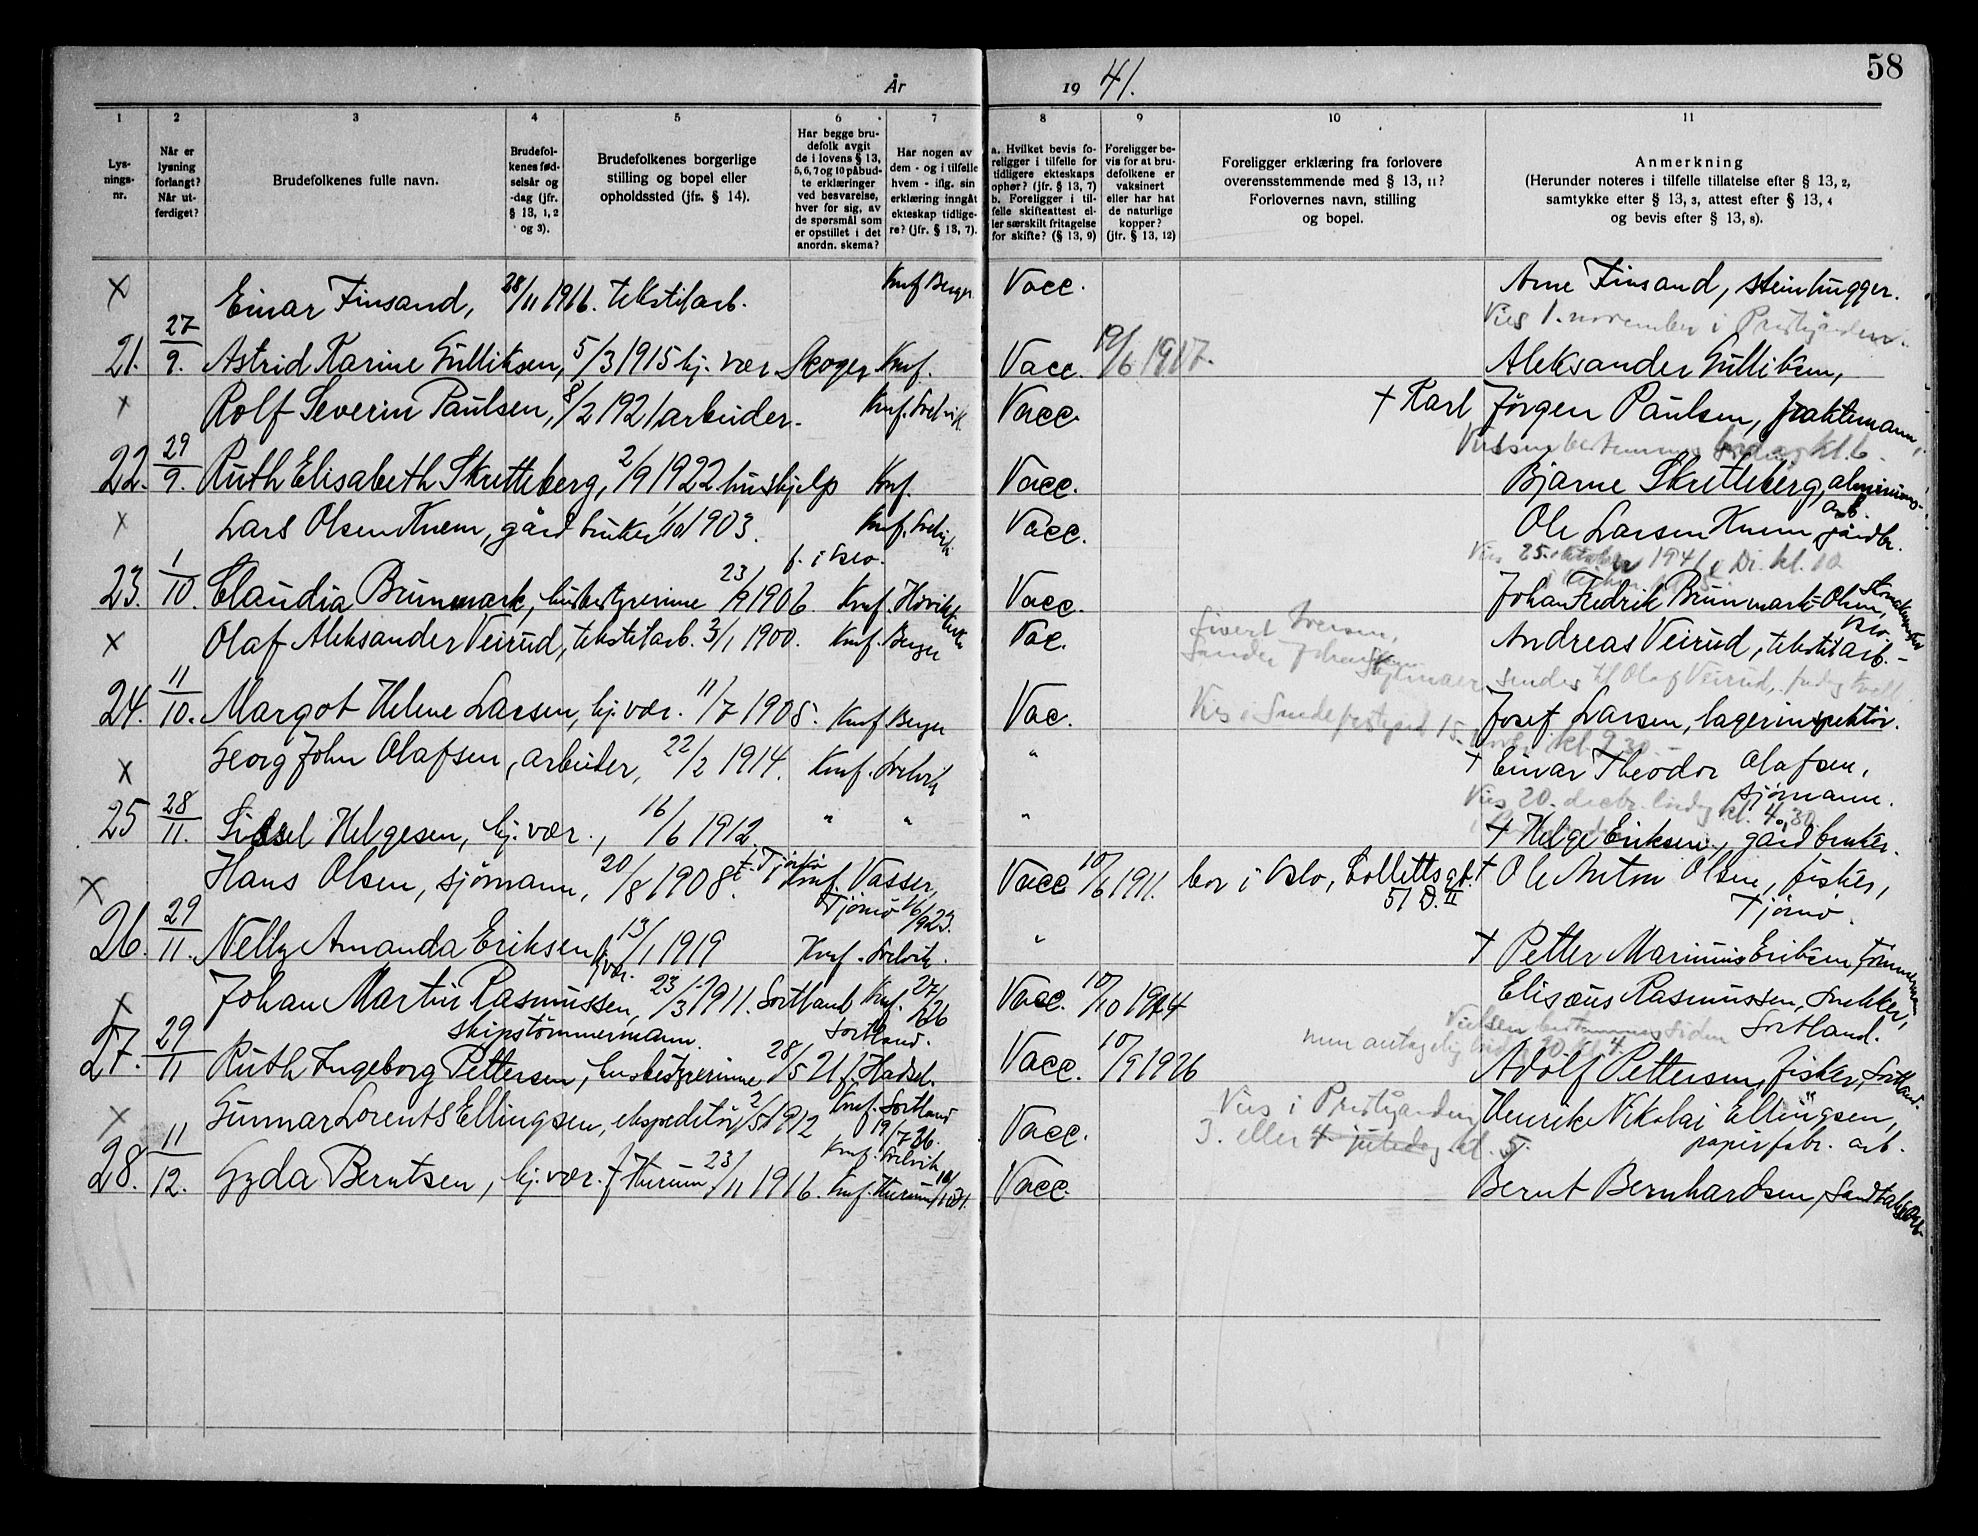 58
År 1941.
1 2 3 4 5 6 7 8 9 10 11
Lys-
nings-
nr.
Når er
lysning
forlangt?
Når ut-
ferdiget?
Brudefolkenes fulle navn.
Brudefol-
kenes fød-
selsår og
-dag (jfr.
§ 13, 1, 2
og 3).
Brudefolkenes borgerlige
stilling og bopel eller
opholdssted (jfr. § 14).
Har begge bru-
defolk avgit
de i lovens § 13,
5, 6, 7 og 10 påbud-
te erklæringer
ved besvarelse,
hver for sig, av
de spørsmål som
er opstillet i det
anordn. skema?
Har nogen av
dem - og i tilfelle
hvem - iflg. sin
erklæring inngått
ekteskap tidlige-
re? (jfr. § 13, 7).
a. Hvilket bevis fo-
religger i tilfelle for
tidligere ekteskaps
ophør? (jfr. § 13, 7)
b. Foreligger i til-
felle skifteattest el-
ler særskilt fritagelse
for skifte? (§ 13, 9)
Foreligger be-
vis for at bru-
defolkene er
vaksinert
eller har hat
de naturlige
kopper?
(jfr. § 13, 12)
Foreligger erklæring fra forlovere
overensstemmende med § 13, 11?
Forlovernes navn, stilling
og bopel.
Anmerkning
(Herunder noteres i tilfelle tillatelse efter § 13, 2,
samtykke efter § 13, 3, attest efter § 13, 4
og bevis efter § 13, 8).
x Einar Finsand, 28/11 1916. tekstilarb. Knf Berger Vacc. Arne Finsand, steinhugger.
Vies 1. november i Prestgården.
21. 27/9. Astrid Karine Gulliksen, 5/3 1915 hj. vær. Skoger Knf. Vacc. 12/6 1917. Aleksander Gulliksen,
x Rolf Severin Paulsen, 8/2 1921 arbeider. Knf. Svelvik Vacc. † Karl Jörgen Paulsen, fraktemann,
Vielsen bestemmes kl. 6.
22. 29/9. Ruth Elisabeth Skutteberg, 2/9 1922 hushjelp Knf. Vacc. Bjarne Skutteberg, aluminiums-
arb.
x Lars Olsen Knem, gårdbruker 1/10 1903. Knf. Svelvik Vacc. Ole Larsen Knem gårdbr.
Vies 25. oktober 1941 kl. 10
f. i Oslo.
23. 1/10. Claudia Brunmark, husbestyrerinne 23/9 1906. Knf. Vacc. Johan Fredrik Brunmark-Olsen,
Oslo.
x Olaf Aleksander Veirud, tekstilarb. 3/1 1900. Knf. Berger Vac. Sivert Iversen, Andreas Veirud, tekstilarb.-
sendes til Olaf Veirud,
24. 11/10. Margot Helene Larsen, hj. vær. 11/7 1905. Knf Berger Vac. Vies i 15. kl. 9.30. Josef Larsen, lagerinspektör.
x Georg John Olafsen, arbeider, 22/2 1914. Knf. Svelvik " † Einar Theodor Olafsen,
sjømann.
Vies 20. decbr. lördag kl. 4.30
25 28/11. Sidsel Helgesen, hj. vær., 16/6 1912. " " " † Helge Eriksen, gårdbruker.
x Hans Olsen, sjømann, 20/8 1908 f. Tjömö Knf. Vasser, Tjømø Vacc 10/6 1911. bor i Oslo, Collettsgt. 51 D. II † Ole Anton Olsen, fisker,
Tjömö.
26. 29/11. Nelly Amanda Eriksen hj. vær. 13/1 1919 Knf. Svelvik. " † Petter Marinius Eriksen tömmermann
x Johan Martin Rasmussen, 23/3 1911. Sortland Knf. 27/6 26 Sortland. Vacc. 10/10 1924 Elisæus Rasmussen, snekker,
Sortland.
skipstömmermann.
Vielsen bestemmes siden
men antagelig kl. 4.
27. 29/11 Ruth Ingeborg Pettersen, husbestyrerinne 28/5 21 f. Hadsel. Knf. Sortland 19/7 36. Vacc. 10/9 1926 Adolf Pettersen, fisker, Sortland.
x Gunnar Lorents Ellingsen, ekspeditör 2/5 1912 Knf. Svelvik Vacc. Vies i Prestgården Henrik Nikolai Ellingsen,
3. eller 4. juledag kl. 5. papirfabr. arb.
28. 11/12. Gyda Berntsen, hj. vær. f Hurum 23/11 1916. Knf. Hurum Vacc. Bernt Bernhardsen,